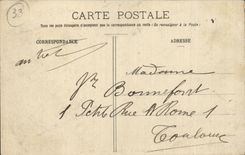 33
CARTE POSTALE
Tous les pays étrangers n'acceptent pas la correspondance au recto. (Se renseigner à la Poste)
CORRESPONDANCE
ADRESSE
Madame
Bonnefont
1 Ptite Rue St Rome 1
Toulouse